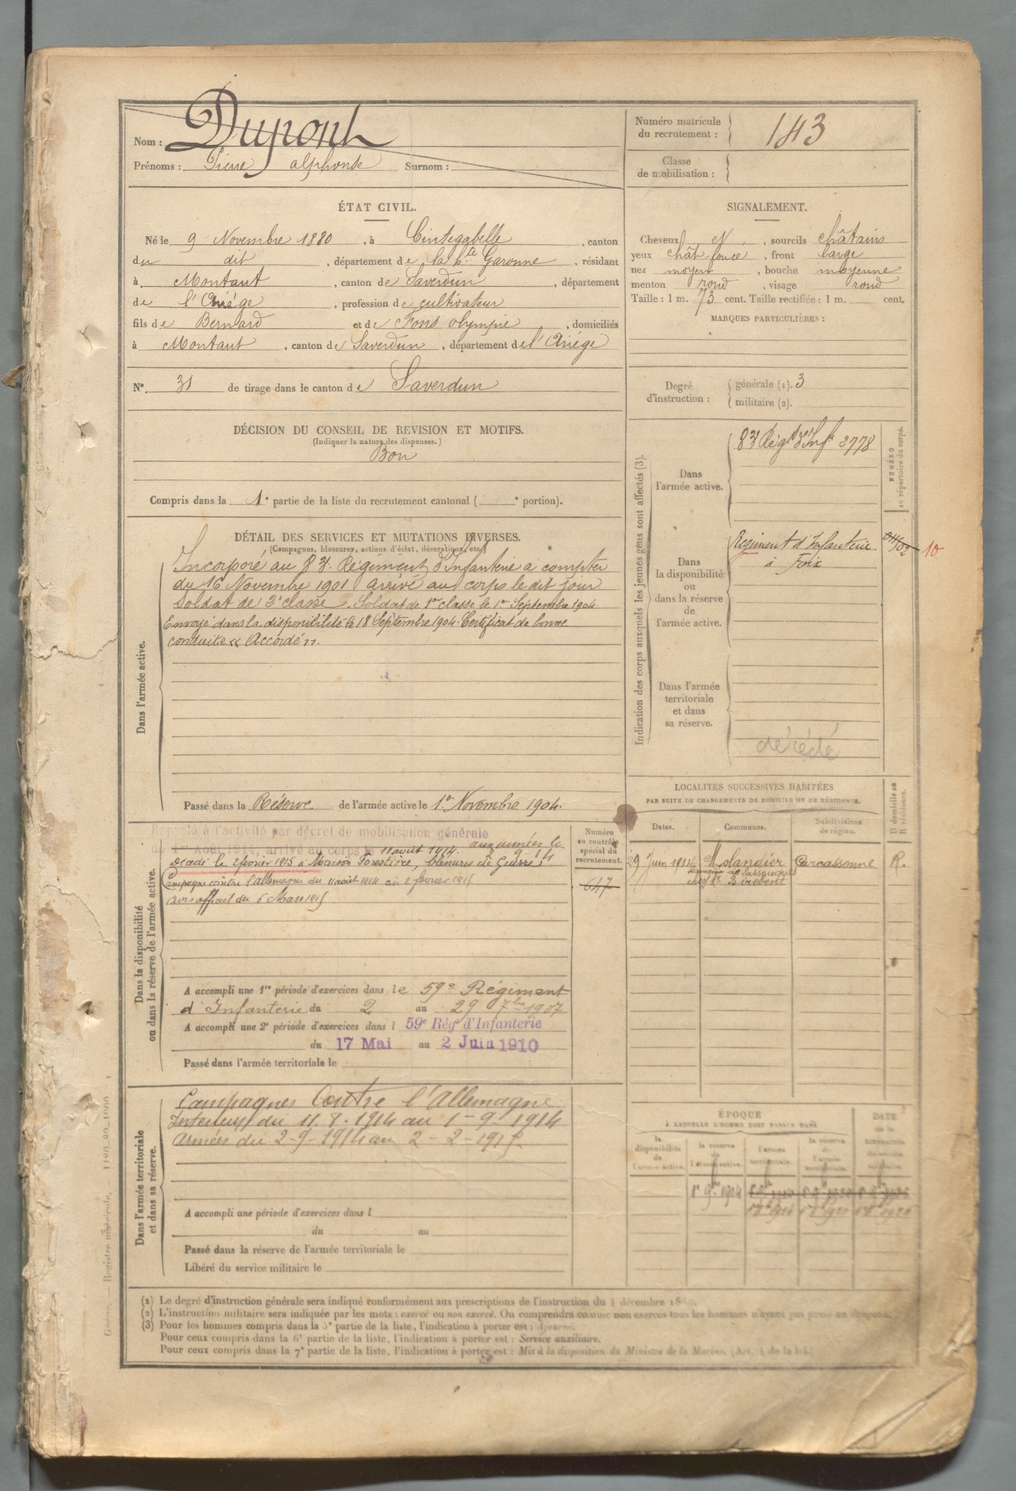 Nom : Dupont
Prénoms : Pierre alphonse Surnom :
Numéro matricule du recrutement : 143
Classe de mobilisation :
ÉTAT CIVIL.
Né le 9 Novembre 1880, à Cintegabelle, canton
du dit, département de la hte Garonne, résidant
à Montaut, canton de Saverdun, département
de l'Ariège, profession de cultivateur
fils de Bernard et de Fons olympie, domiciliés
à Montaut, canton de Saverdun, département de l'Ariége
N° 31 de tirage dans le canton de Saverdun
SIGNALEMENT.
Cheveux et N, sourcils châtains
yeux chât foncé, front large
nez moyen, bouche moyenne
menton rond, visage rond
Taille : 1 m. 73 cent. Taille rectifiée : 1 m. cent.
MARQUES PARTICULIÈRES :
Degré d'instruction : générale (1). 3
militaire (2).
DÉCISION DU CONSEIL DE REVISION ET MOTIFS.
(Indiquer la nature des dispenses.)
Bon
Compris dans la 1e partie de la liste du recrutement cantonal ( e portion).
Indication des corps auxquels les jeunes gens sont affectés (3).
NUMÉRO au répertoire du corps.
Dans l'armée active.
83 Régt d'Inf. 3778
Dans la disponibilité ou dans la réserve de l'armée active.
Régiment d'Infanterie
à Foix
10
Dans l'armée territoriale et dans sa réserve.
décédé
DÉTAIL DES SERVICES ET MUTATIONS DIVERSES.
(Campagnes, blessures, actions d'éclat, décorations, etc.)
Dans l'armée active.
Incorporé au 83e Régiment d'Infanterie à compter
du 16 Novembre 1901 arrivé au corps le dit jour
Soldat de 2e classe. Soldat de 1re classe le 1er Septembre 1904
Envoyé dans la disponibilité le 18 Septembre 1904. Certificat de bonne
conduite « Accordé ».
Passé dans la Réserve de l'armée active le 1er Novembre 1904.
Dans la disponibilité ou dans la réserve de l'armée active.
Rappelé à l'activité par décret de mobilisation générale
du 1er Août 1914, arrivé au corps le 11 août 1914. aux armées le
Décédé le 2 février 1915 à Maison Forestière, blessures de Guerre
Campagne contre l'allemagne du 11 août 1914 au 2 février 1915
avis officiel du 6 Mars 1915
Numéro au contrôle spécial du recrutement.
647
A accompli une 1re période d'exercices dans le 59e Régiment
d'Infanterie du 2 au 29 7bre 1907
A accompli une 2e période d'exercices dans l 59e Rég' d'Infanterie
du 17 Mai au 2 Juin 1910
Passé dans l'armée territoriale le
LOCALITÉS SUCCESSIVES HABITÉES
PAR SUITE DE CHANGEMENTS DE DOMICILE OU DE RÉSIDENCE.
D domicile ou R résidence.
Dates. Communes. Subdivisions de région.
29 Juin 1911 Molandier Carcassonne R.
Dans l'armée territoriale et dans sa réserve.
Campagnes Contre l'Allemagne
Intérieur du 11.8.1914 au 1-9-1914
Armées du 2-9-1914 au 2-2-1915
A accompli une période d'exercices dans l
du au
Passé dans la réserve de l'armée territoriale le
Libéré du service militaire le
ÉPOQUE
À LAQUELLE L'HOMME DOIT PASSER DANS
la disponibilité de l'armée active. la réserve de l'armée active. l'armée territoriale. la réserve de l'armée territoriale.
DATE de la libération du service militaire.
(1) Le degré d'instruction générale sera indiqué conformément aux prescriptions de l'instruction du 4 décembre
(2) L'instruction militaire sera indiquée par les mots : exercé ou non exercé. On comprendra comme non exercés tous les hommes n'ayant pas passé au drapeau.
(3) Pour les hommes compris dans la 5e partie de la liste, l'indication à porter est : Ajourné.
Pour ceux compris dans la 6e partie de la liste, l'indication à porter est : Service auxiliaire.
Pour ceux compris dans la 7e partie de la liste, l'indication à porter est : Mis à la disposition du Ministre de la Marine. (Art. 4 de la loi.)